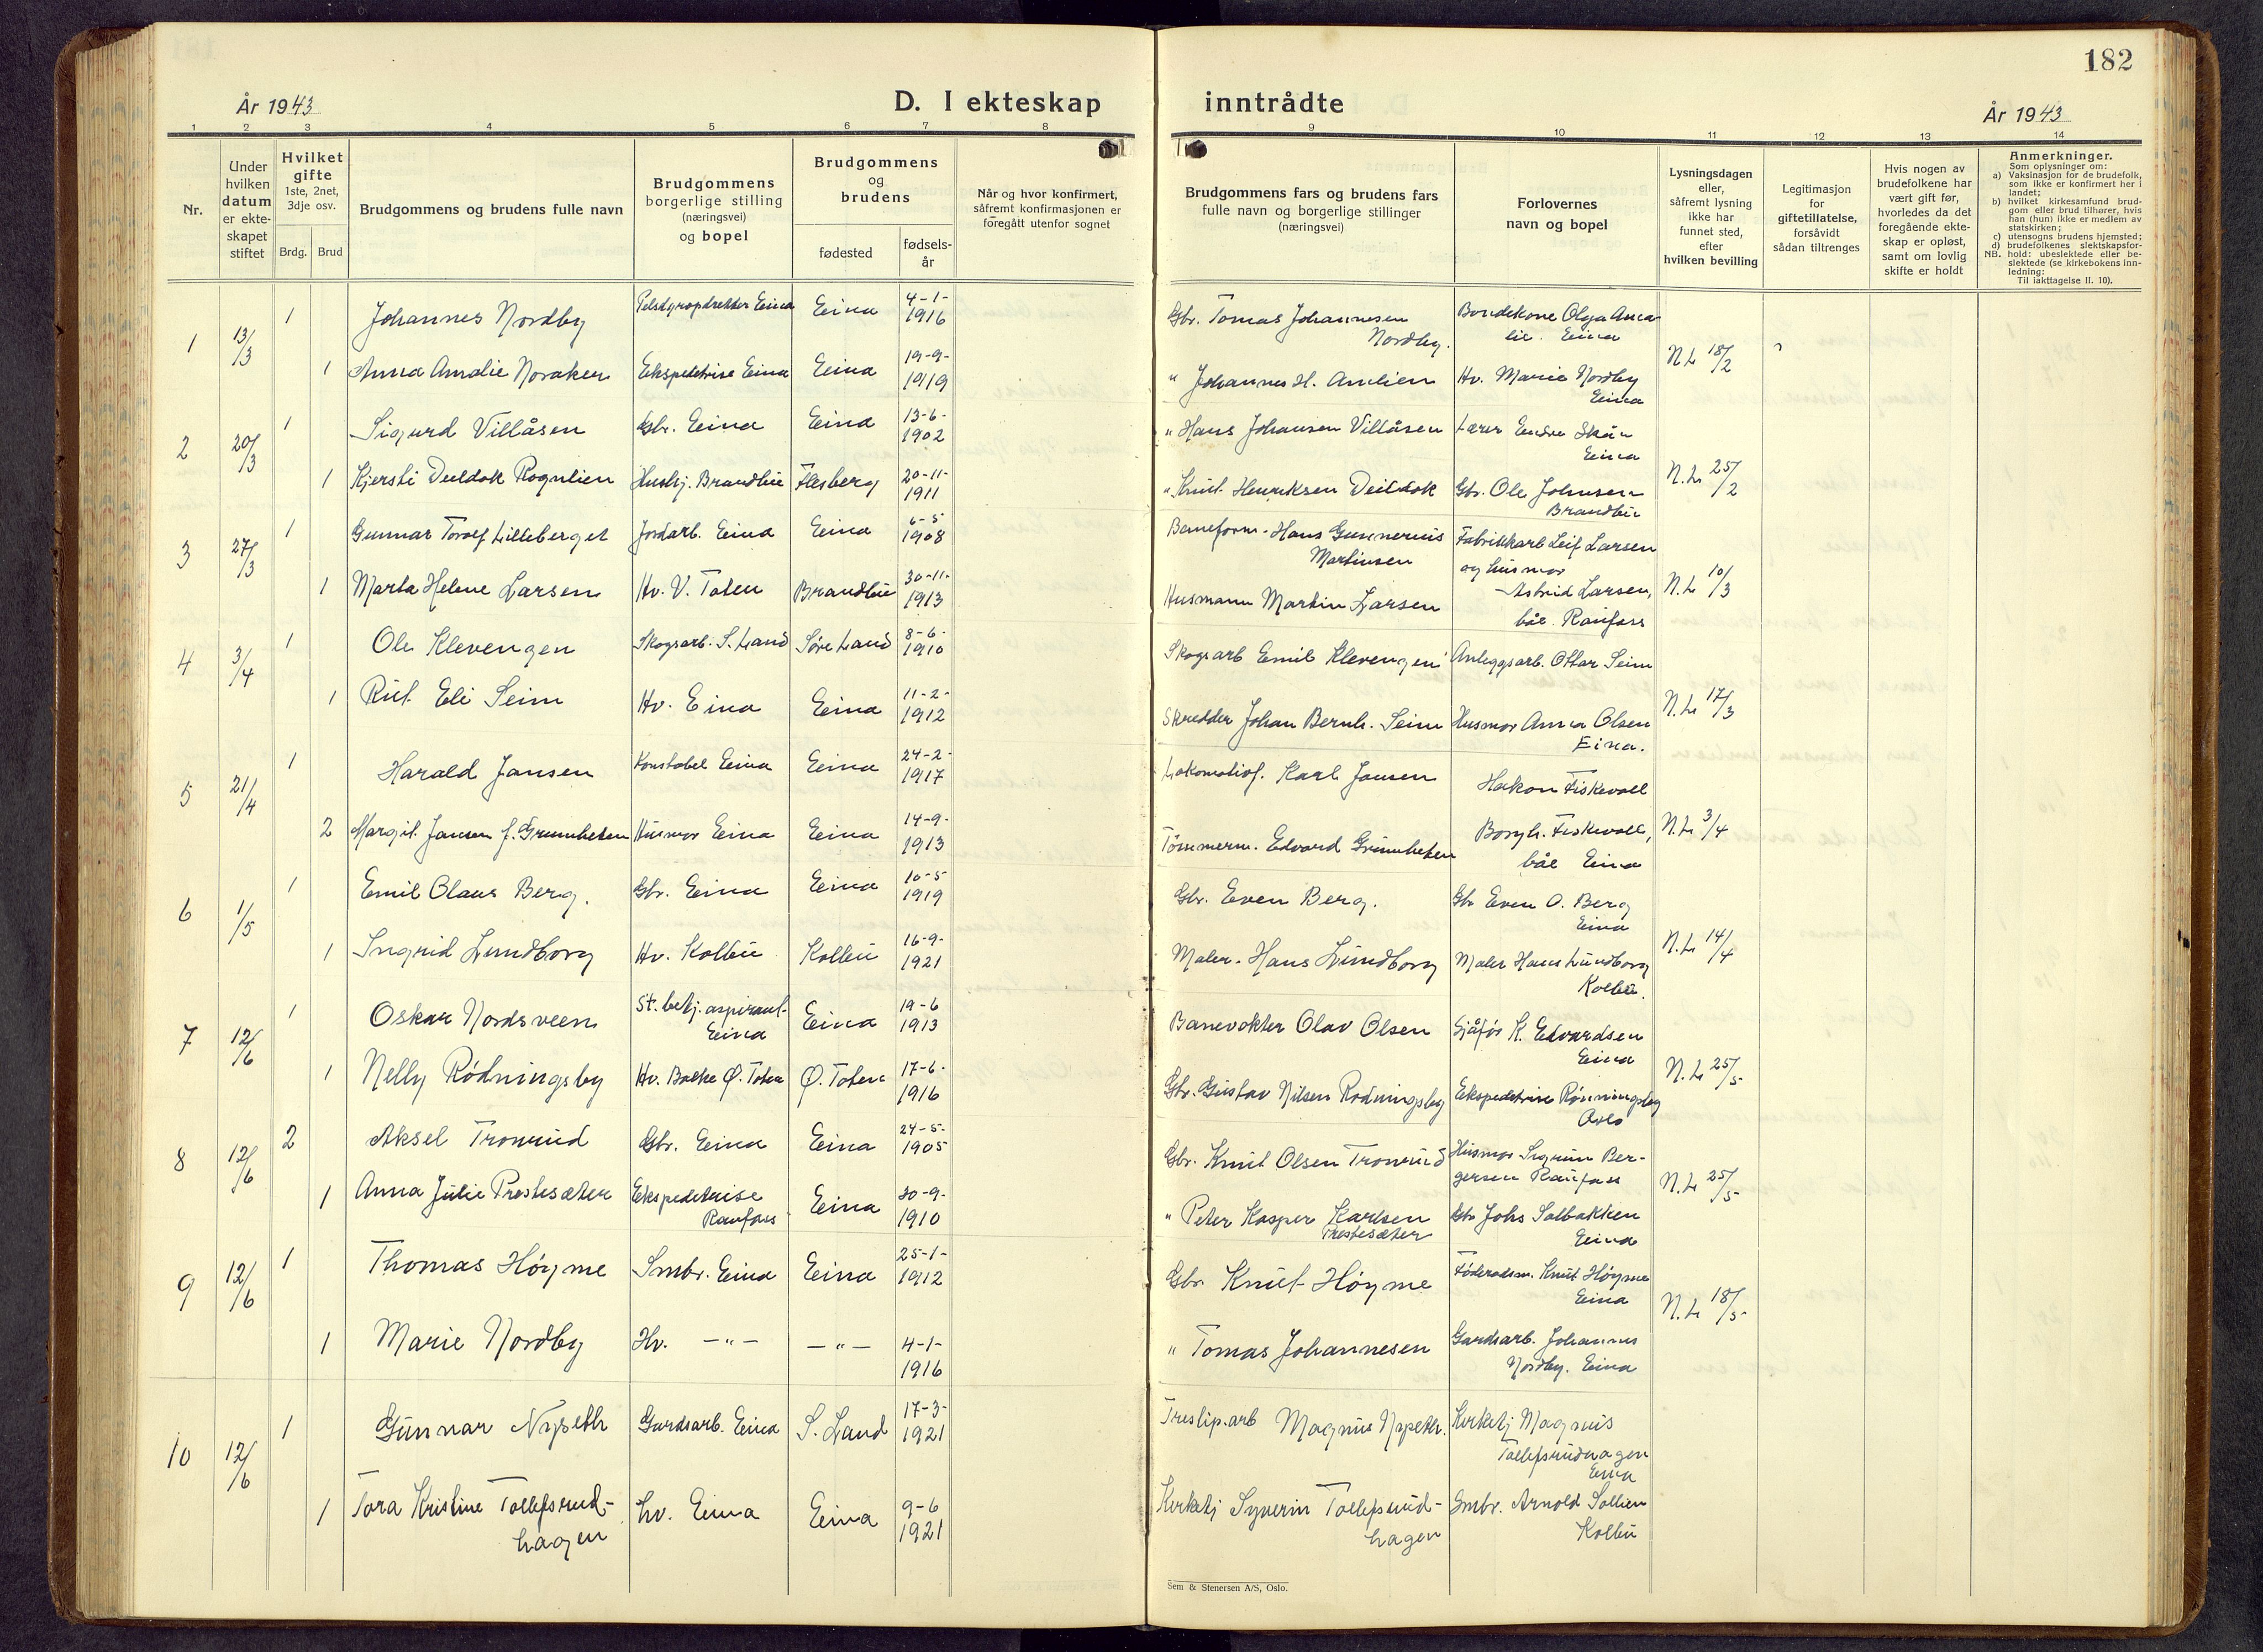 182
År 1943
D. I ekteskap
inntrådte
År 1943
1 2 3 4 5 6 7 8 9 10 11 12 13 14
Nr.
Under hvilken datum er ekteskapet stiftet
Hvilket gifte
1ste, 2net, 3dje osv.
Brdg. Brud
Brudgommens og brudens fulle navn
Brudgommens borgerlige stilling (næringsvei) og bopel
Brudgommens og brudens
fødested
fødselsår
Når og hvor konfirmert, såfremt konfirmasjonen er foregått utenfor sognet
Brudgommens fars og brudens fars fulle navn og borgerlige stillinger (næringsvei)
Forlovernes navn og bopel
Lysningsdagen eller, såfremt lysning ikke har funnet sted, efter hvilken bevilling
Legitimasjon for giftetillatelse, forsåvidt sådan tiltrenges
Hvis nogen av brudefolkene har vært gift før, hvorledes da det foregående ekteskap er opløst, samt om lovlig skifte er holdt
Anmerkninger.
Som oplysninger om:
a) Vaksinasjon for de brudefolk, som ikke er konfirmert her i landet;
b) hvilket kirkesamfund brudgom eller brud tilhører, hvis han (hun) ikke er medlem av statskirken;
c) utensogns brudens hjemsted;
d) brudefolkenes slektskapsforhold: ubeslektede eller beslektede (se kirkebokens innledning:
NB. Til iakttagelse II. 10).
1 13/3 1 Johannes Nordby Eina Eina 4-1-1916 Gbr. Tomas Johannesen Nordby. Bondekone Olga Amalie. Eina
1 Anna Amalie Noraker Ekspeditrise Eina Eina 19-9-1919 " Johannes H. Amlien Hv. Marie Nordby Eina N.L 18/2
2 20/3 1 Sigurd Villåsen Gbr. Eina Eina 13-6-1902 " Hans Johansen Villåsen Lærer Endre Skån Eina
1 Kjersti Deildok Rognlien Hushj. Brandbu Flesberg 20-11-1911 " Knut Henriksen Deildok Gbr. Ole Johnsen Brandbu N.L. 25/2
3 27/3 1 Gunnar Torolf Lilleberget Jordarb. Eina Eina 6-5-1908 Baneform. Hans Gunnerius Martinsen Fabrikkarb Leif Larsen og husmor
1 Marta Helene Larsen Hv. V. Toten Brandbu 30-11-1913 Husmann Martin Larsen Astrid Larsen, båe. Raufoss N.L 10/3
4 3/4 1 Ole Klevengen Skogsarb. S. Land Søre Land 8-6-1910 Skogsarb Emil Klevengen Anleggsarb. Ottar Seim
1 Rut Eli Seim Hv. Eina Eina 11-2-1912 Skredder Johan Bernh. Seim Husmor Anna Olsen Eina. N.L. 17/3
5 21/4 1 Harald Jansen Konstabel Eina Eina 24-2-1917 Lokomotivf. Karl Jansen Hakon Fiskevoll
2 Margit Jansen f. Grønnheten Husmor Eina Eina 14-9-1913 Tømmerm. Edvard Grønnheten Borgh. Fiskevoll, båe Eina N.L 3/4
6 1/5 1 Emil Olaus Berg. Gbr. Eina Eina 10-5-1919 Gbr. Even Berg. Gbr Even O. Berg Eina
1 Ingrid Lundborg Hv. Kolbu Kolbu 16-9-1921 Maler. Hans Lundborg Maler Hans Lundborg Kolbu. N.L. 14/4
7 12/6 1 Oskar Nordsveen St.betj. aspirant Eina Eina 19-6 1913 Banevokter Olav Olsen Sjåfør K. Edvardsen Eina
1 Nelly Rødningsby Hv. Balke Ø. Toten Ø. Toten 17-6-1916 Gbr. Gustav Nilsen Rødningsby Ekspeditrise Rønningsby Oslo N.L 25/5
8 12/6 2 Aksel Tronrud Gbr. Eina Eina 24-5-1905 Gbr. Knut Olsen Tronrud Husmor Sigrun Bergersen Raufoss
1 Anna Julie Prestesæter Ekspeditrise Raufoss Eina 30-9-1910 " Peter Kasper Karlsen Prestesæter Gbr Johs Solbakken Eina N.L 25/5
9 12/6 1 Thomas Høyme Smbr. Eina Eina 25-1-1912 Gbr. Knut Høyme Føderådsm. Knut Høyme Eina
1 Marie Nordby Hv. —"— —"— 4-1-1916 " Tomas Johannesen Gardsarb. Johannes Nordby. Eina N.L 18/5
10 12/6 1 Gunnar Nyseth Gardsarb. Eina S. Land 17-3-1921 Treslip.arb Magnus Nyseth. Kirketj Magnus Tollefsrudhagen Eina
1 Tora Kristine Tollefsrudhagen hv. Eina Eina 9-6 1921 Kirketj Syverin Tollefsrudhagen Smbr. Arnold Sollien Kolbu
Sem & Stenersen A/S, Oslo.